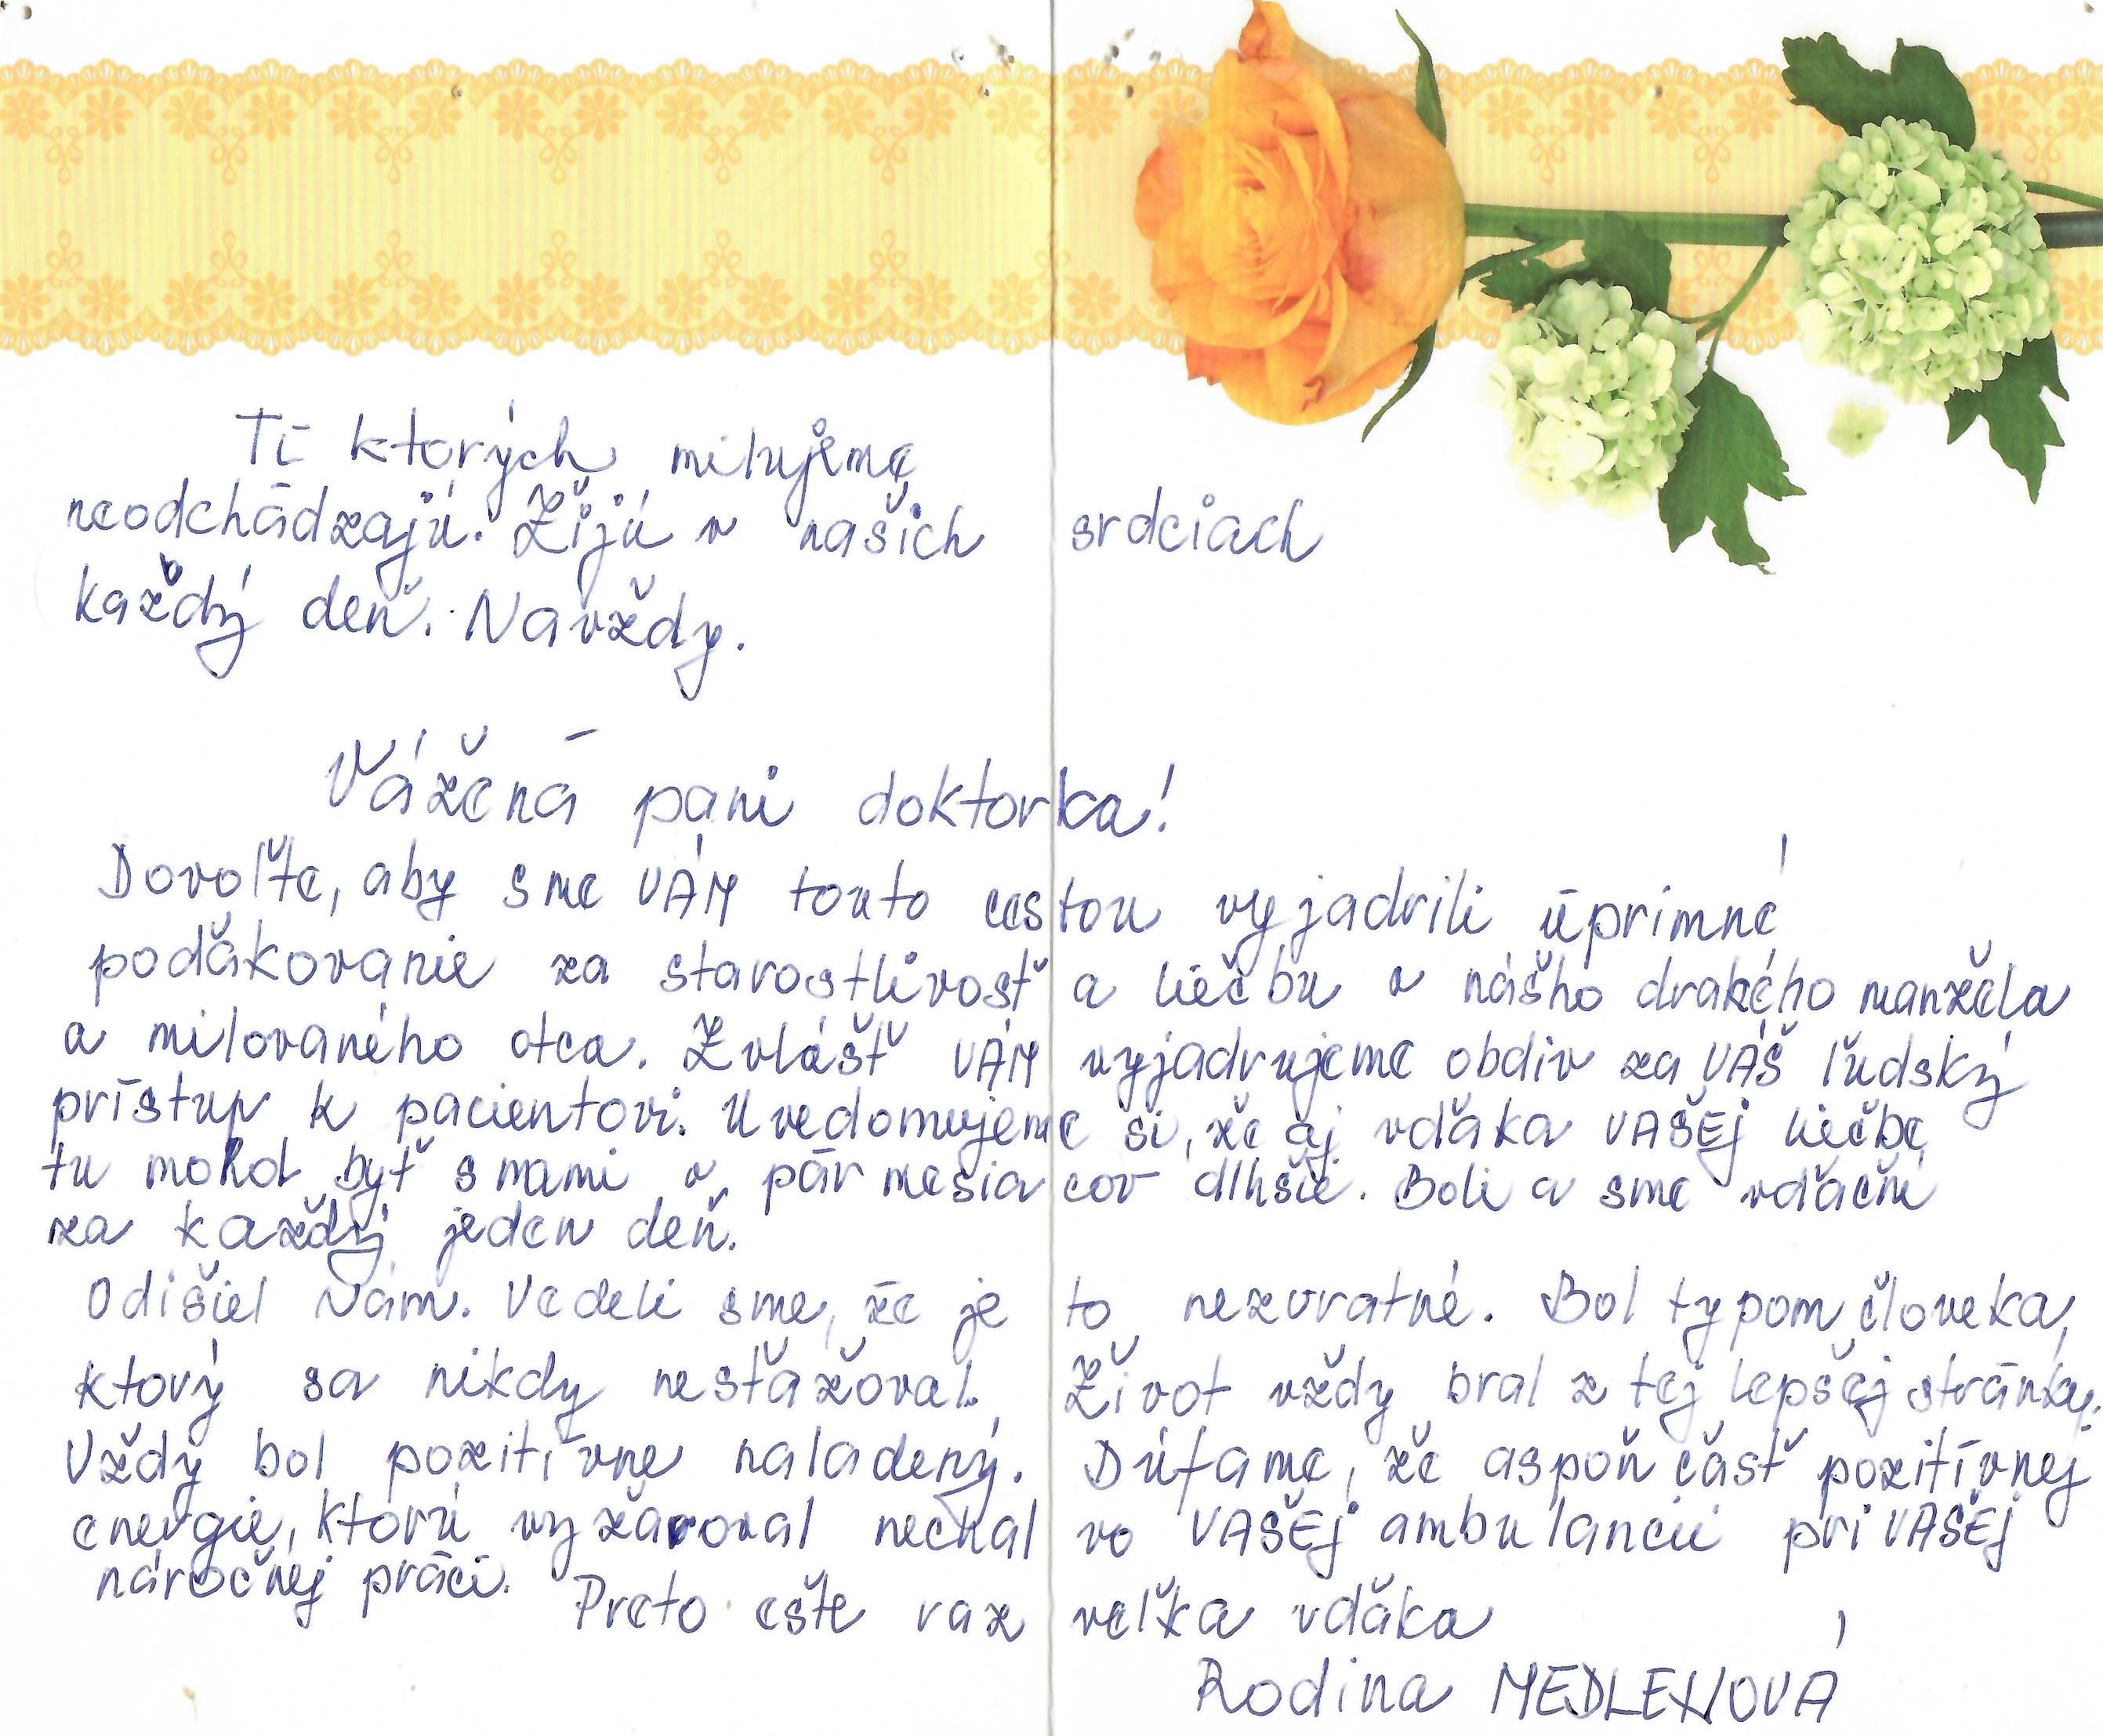 Tí ktorých milujeme
neodchádzajú. Žijú v našich srdciach
každý deň. Navždy.
Vážená pani doktorka!
Dovoľte, aby sme VÁM touto cestou vyjadrili úprimné
poďakovanie za starostlivosť a liečbu u nášho drahého manžela
a milovaného otca. Zvlášť VÁM vyjadrujeme obdiv za VÁŠ ľudský
prístup k pacientovi. Uvedomujeme si, že aj vďaka VAŠEJ liečbe
tu mohol byť s nami o pár mesiacov dlhšie. Boli a sme vďační
za každý jeden deň.
Odišiel Nám. Vedeli sme, že je to nezvratné. Bol typom človeka,
ktorý sa nikdy nesťažoval. Život vždy bral z tej lepšej stránky.
Vždy bol pozitívne naladený. Dúfame, že aspoň časť pozitívnej
energie, ktorú vyžaroval nechal vo VAŠEJ ambulancii pri VAŠEJ
náročnej práci. Preto ešte raz veľká vďaka
Rodina